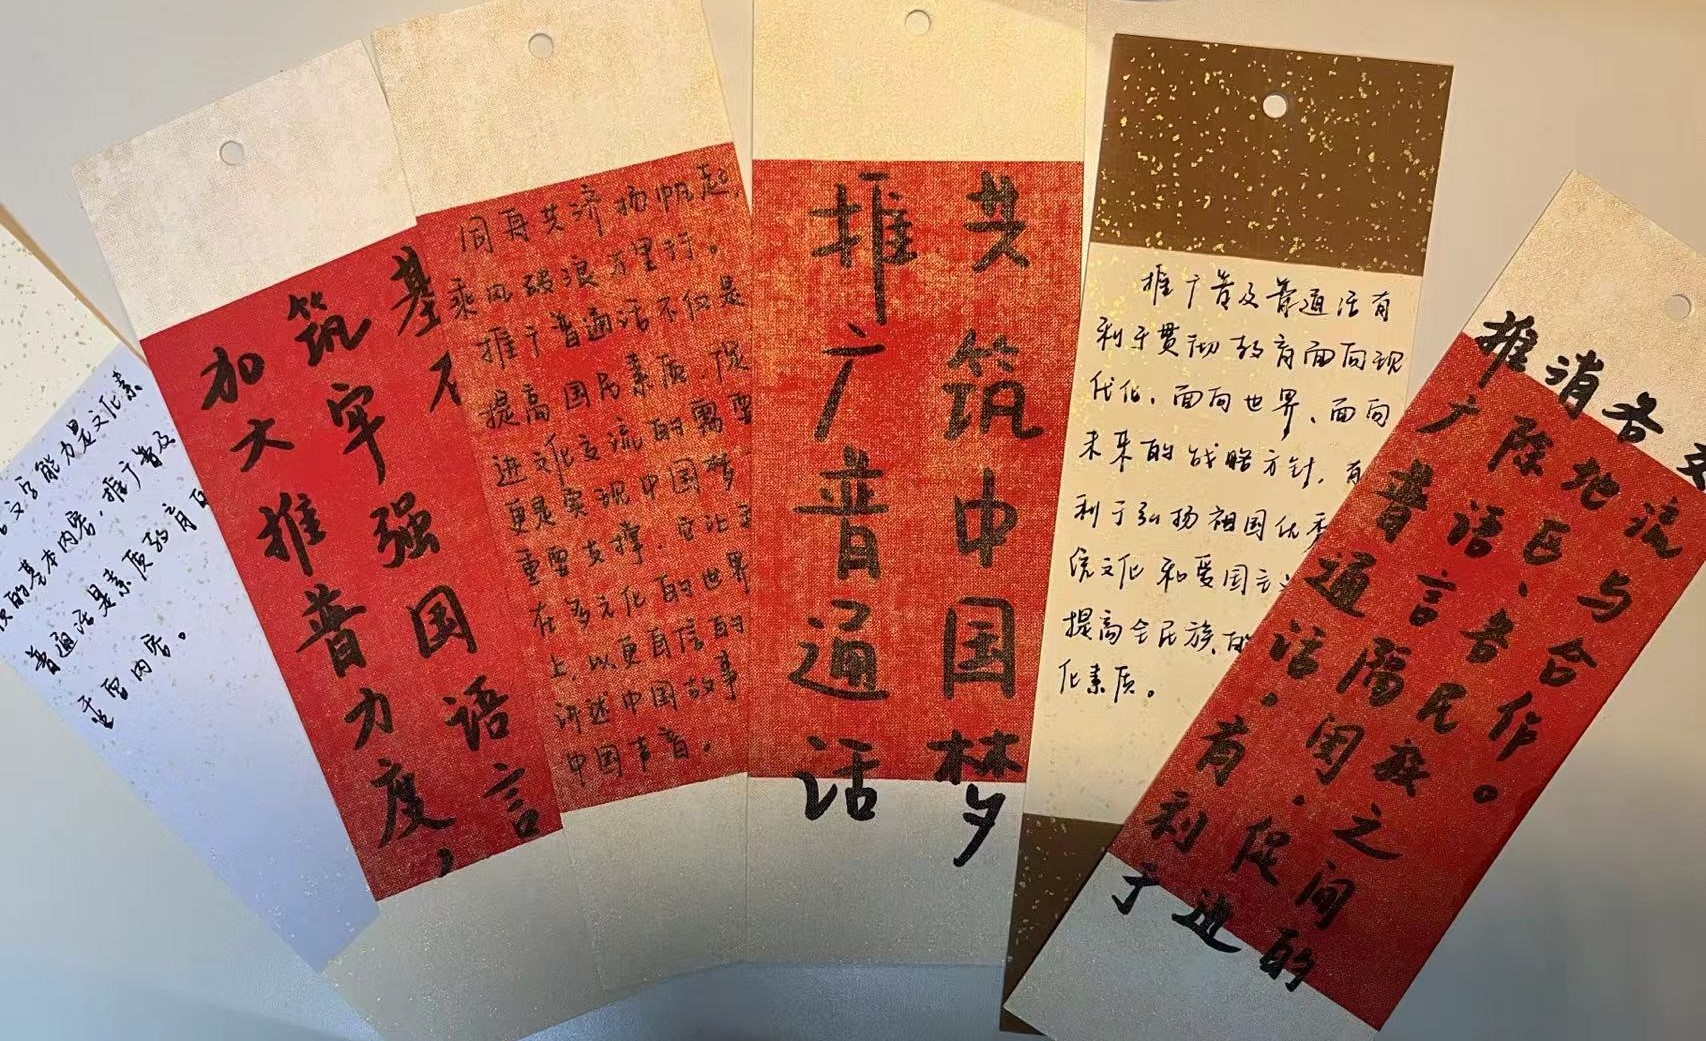 文字能力是文化素
的基本内容,推广普及
普通话是素质教育
重要内容。
加大推普力度
筑牢强国语言
基
同舟共济扬帆起,
乘风破浪万里行。
推广普通话不仅是
提高国民素质、促
进文化交流的需要
更是实现中国梦
重要支撑,它让
在多元化的世界
上,以更自信的
讲述中国故事
中国声音。
推广普通话
共筑中国梦
推广普及普通话有
利于贯彻教育面向现
代化、面向世界、面向
未来的战略方针,有
利于弘扬祖国优秀
统文化和爱国主
提高全民族的
化素质。
推广普通话,有利于
消除语言隔阂,促进
各地区、各民族之间的
交流与合作。